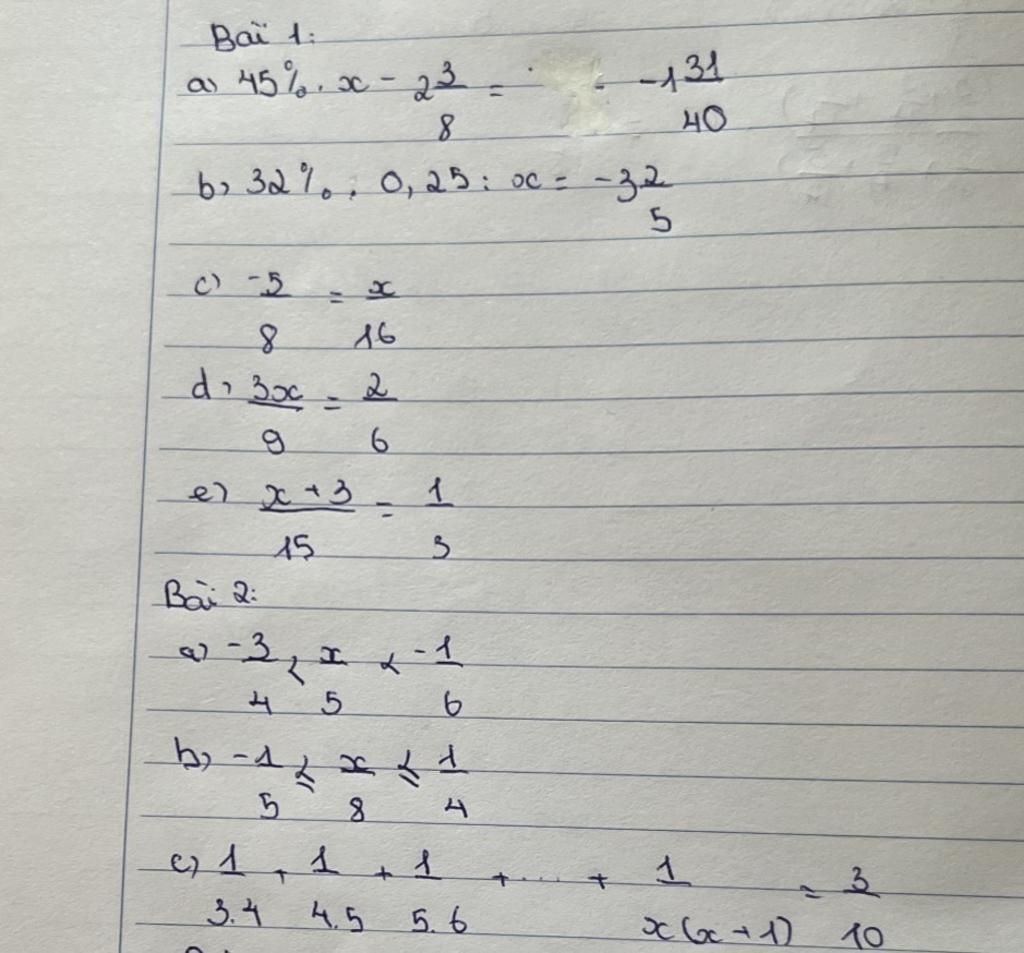 Bài 1:
a) 45%. x - 2 3/8 = - 1 31/40
b) 32%. 0,25 : x = - 3 2/5
c) -5/8 = x/16
d) 3x/9 = 2/6
e) x + 3/15 = 1/3
Bài 2:
a) -3/4 < x/5 < -1/6
b) -1/5 ≤ x/8 ≤ 1/4
c) 1/3.4 + 1/4.5 + 1/5.6 + .... + 1/x(x+1) = 3/10